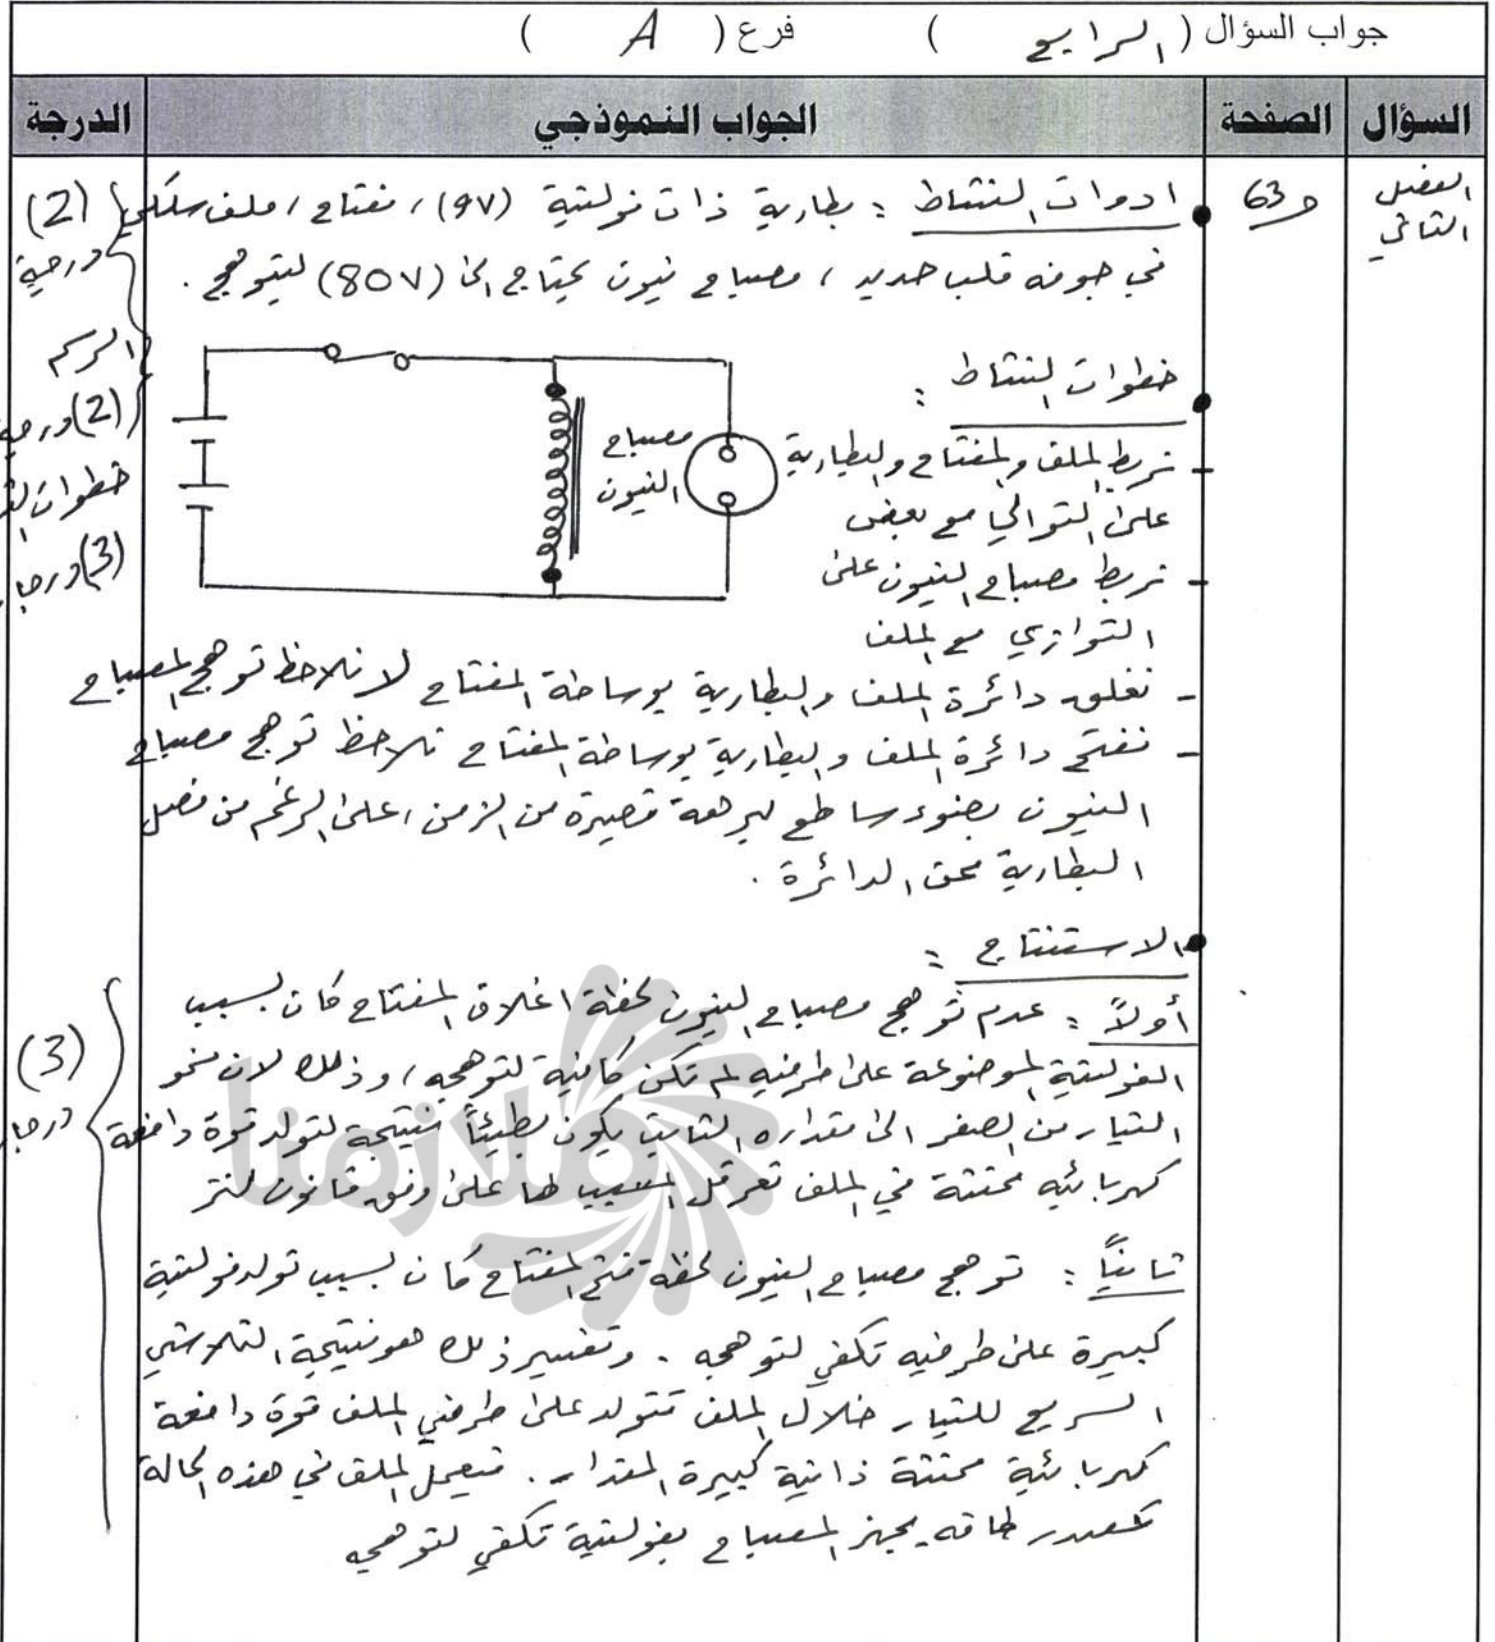 جواب السؤال ( الرابع ) فرع ( A )
السؤال الصفحة الجواب النموذجي الدرجة
الفصل الثاني
ص63
ادوات النشاط : بطارية ذات فولتية (9V) ، مفتاح ، ملف سلكي
في جوفه قلب حديد ، مصباح نيون يحتاج الى (80V) ليتوهج .
(2) درجة
خطوات النشاط :
- نربط الملف والمفتاح والبطارية
على التوالي مع بعض
- نربط مصباح النيون على
التوازي مع الملف
مصباح
النيون
الرسم
(2) درجة
خطوات
(3) درجا
- نغلق دائرة الملف والبطارية بوساطة المفتاح لا نلاحظ توهج المصباح
- نفتح دائرة الملف والبطارية بوساطة المفتاح نلاحظ توهج مصباح
النيون بضوء ساطع لبرهة قصيرة من الزمن ، على الرغم من فصل
البطارية عن الدائرة .
الاستنتاج :
أولاً : عدم توهج مصباح النيون لحظة اغلاق المفتاح كان بسبب
الفولتية الموضوعة على طرفيه لم تكن كافية لتوهجه ، وذلك لان نمو
التيار من الصفر الى مقداره الثابت يكون بطيئاً نتيجة لتولد قوة دافعة
كهربائيه محتثة في الملف تعرقل المسبب لها على وفق قانون لنز
(3) درجا
ثانياً : توهج مصباح النيون لحظة فتح المفتاح كان بسبب تولد فولتية
كبيرة على طرفيه تكفي لتوهجه . وتفسير ذلك هو نتيجة التلاشي
السريع للتيار خلال الملف تتولد على طرفي الملف قوة دافعة
كهربائية محتثة ذاتية كبيرة المقدار . فيعمل الملف في هذه الحالة
كمصدر طاقه يجهز المصباح بفولتية تكفي لتوهجه
ملازمنا